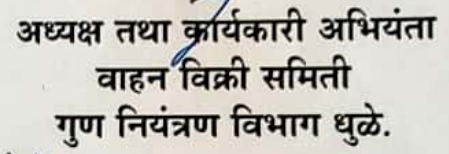 अध्यक्ष तथा कार्यकारी अभियंता
वाहन विक्री समिती
गुण नियंत्रण विभाग धुळे.